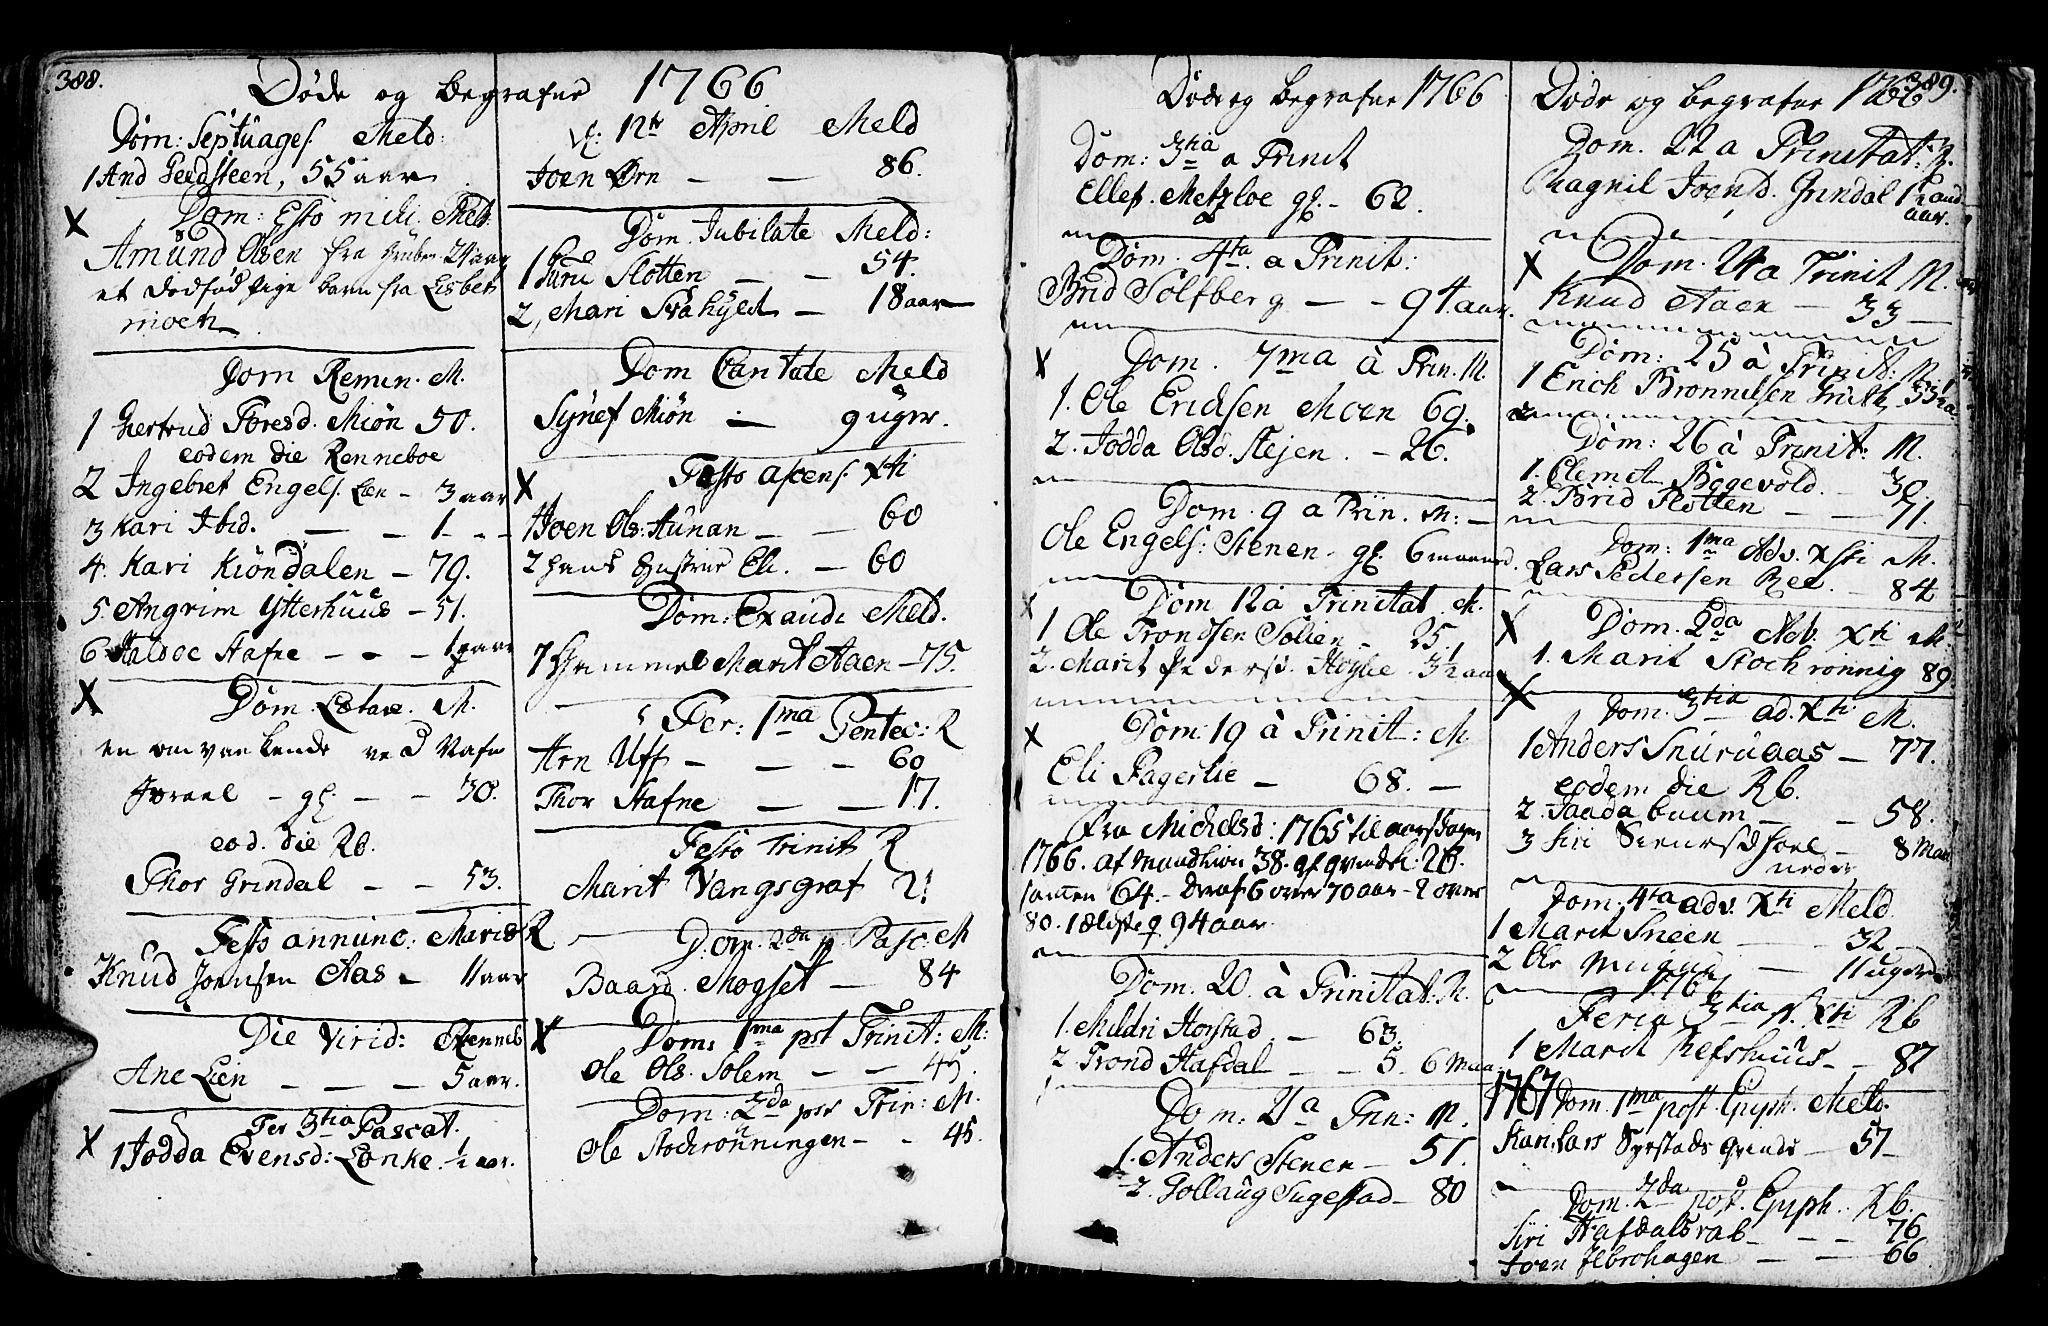 388.
Døde og begrafne
Dom: Septuages. Meld:
1 And Geedsteen, 55 aar
Dom: Esto mihi. Meld:
Amund Olsen fra Gruben 24 aar
et dødfød Pige barn fra Lisbet
moen
Dom Remin. M.
1 Gertrud Toresd. Miøn 50.
eodem die Renneboe
2 Ingebret Engels. Lien - 3 aar
3 Kari Ibid. — — 1 - -
4. Kari Kiøndalen - 79.
5. Angrim Ytterhuus - 51.
6 Haldoe Hafne - - - 1 aar
Dom. Lætare. M.
en omvankende ved Nafn
Israel - gl. - - 30.
eod. die Rb.
Thor Grindal - - 53.
Festo annunc: Mariæ R
Knud Joensen Aas - 11 aar
Die Virid: Renneb
Ane Lien — — — 5 aar.
Fer 3tia Pascat.
1 Jodda Evensd: Lonke. ½ aar.
1766
d: 12te April Meld
Joen Ørn — — 86.
Dom. Jubilate Meld:
1 Guru Slotten — — 54.
2, Mari Svahyld — 18 aar
Dom Cantate Meld
Synef Miøn — 9 uger.
Festo ascens. Xti
1 Joen Ols: Hunan — — 60
2 hans Hustrue Eli. — 60
Dom: Exaudi Meld.
1 Gammel Marit Aaen — 75.
Fer: 1ma Pentec: R
Arn Uff — — — 60
Thor Hafne — — 17.
Festo Trinit R
Marit Vangsgraf 21
Dom. 2da p. Pasc: M
Baard Mogset — 84
Dom: 1ma pst Trinit: M:
Ole Ols. Solem — — 45.
Dom: 2da pst Trin: M.
Ole Stochrönningen — - 45.
Døde og begrafne 1766
Dom: 3tia a Trinit
Ellef. Metzloe gl. - 62.
Dom. 4ta. a Trinit:
Brid Solfberg — - 94. aar.
Dom. 7ma à Trin. M.
1. Ole Erichsen Moen 69.
2. Jodda Olsd. Stejen. - 26.
Dom. 9 a Trin. M: -
Ole Engels: Stenen - gl. 6 maaned.
Dom 12 à Trinitat M.
1 Ole Trondsen Solien - 25.
2. Marit Pedersd. Hoylie. 3½ aar
Dom: 19 à Trinit: M
Eli Fagerlie - 68. -
Fra Michelsd: 1765 til aarsdagen
1766. af Mandkion 38. af qvindk: 26.
samen 64. - deraf 6 over 70 aar - 2 over
80. 1 ældste 94 aar.
Dom. 20. à Trinitat: M.
1. Mildri Horstad — 63.
2. Trond Hafdal — - 5. 6 Maa
Dom: 21 a Trin: M.
1. Anders Stenen — 51.
2. Gollaug Sugestad - 80
389.
Døde og begrafne 1766
Dom. 22 a Trinitat: M.
Ragnil Joensd. Grindal 1½ and.
aar.
Dom. 24 a Trinit M.
Knud Aaen — 33 —
Dom: 25 à Trinit: M.
1 Erich Bronnilsen
Dom: 26 à Trinit: M.
1. Clemet Bögevold. - 30.
2. Brid Slotten - — 71.
Dom: 1ma Adv. Xsti M.
Lars Pedersen Ree. - 84
Dom. 2da Adv. Xti M:
1. Marit Stochronnig 89
Dom. 3tia ad. Xti M.
1 Anders Snuruaas — 77.
eodem die Rb.
2. Jaadabuum — - 58.
3 Siri — 8 Maa
neder
Dom. 4ta adv. Xti Meld
1 Marit Sneen — 32 -
2 Ole — 11 uger
Feria 3tia p. Xti Rb
1 Marit Refshuus - - 87
1767 Dom. 1ma post. Epiph. Meld.
Kari Lars Syrstads Qvinde — 57 -
Dom. 2da post. Epiph. Rb.
Siri Hafdalsrab - - - 76
Joen Ilbrohagen — — 66